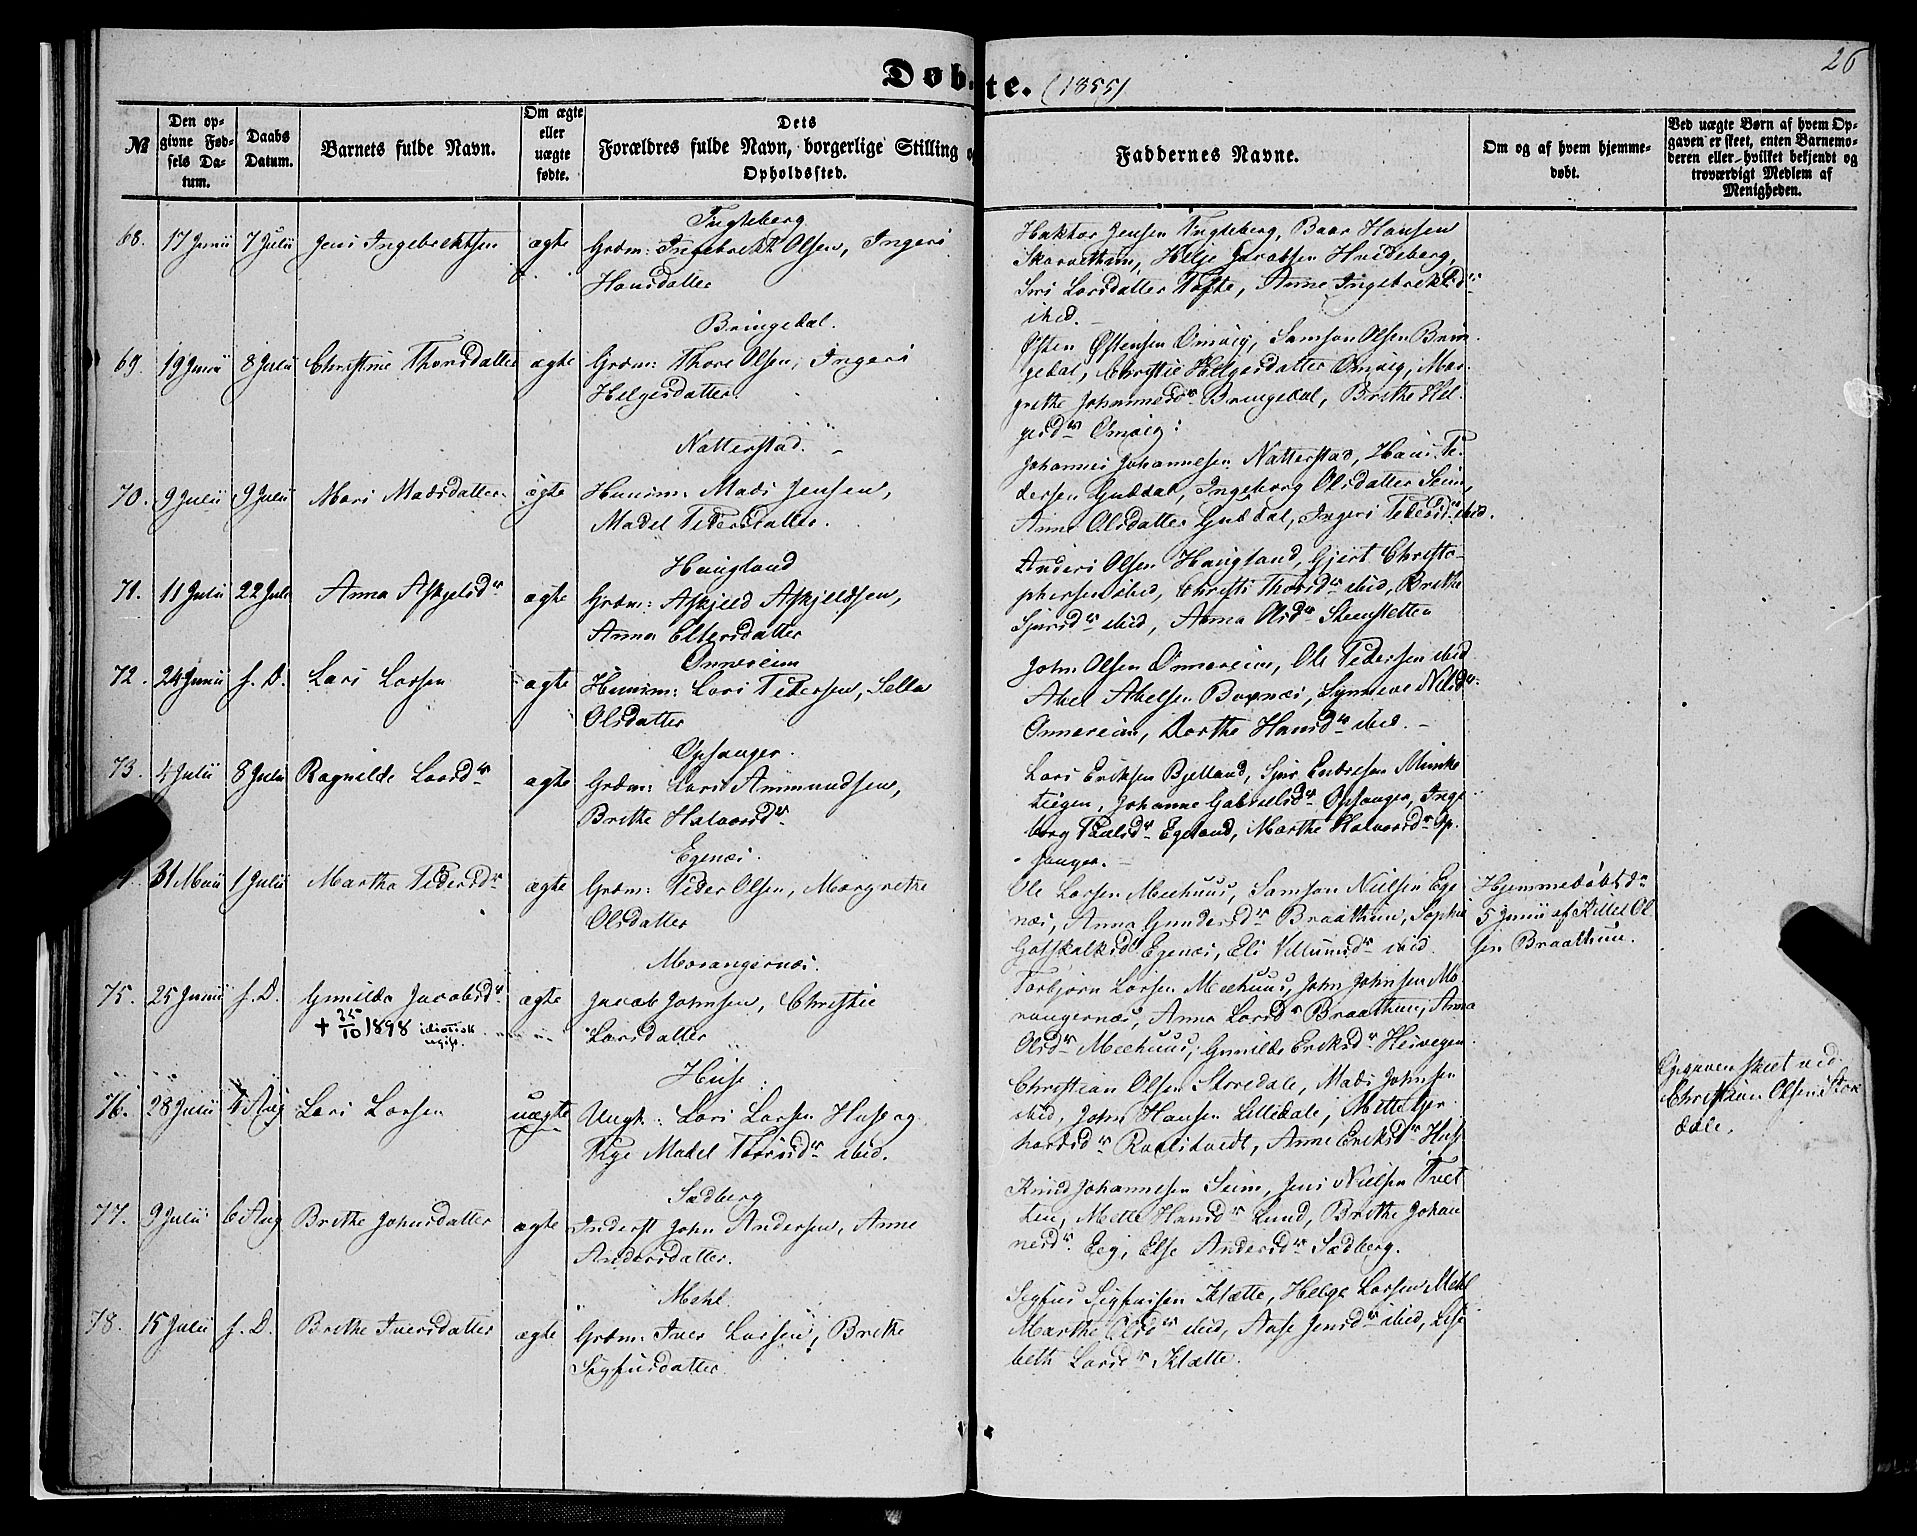 Døbte. (1855)
26
№
Den op-
givne Fød-
sels Da-
tum.
Daabs
Datum.
Barnets fulde Navn.
Om ægte
eller
uægte
fødte.
Dets
Forældres fulde Navn, borgerlige Stilling o
Opholdssted.
Faddernes Navne.
Om og af hvem hjemme-
døbt.
Ved uægte Børn af hvem Op-
gaven er skeet, enten Barnemo-
deren eller hvilket bekjendt og
troværdigt Medlem af
Menigheden.
68. 17 Junii 7 Julii Jens Ingebrektsen ægte
Fugleberg
Grdm: Ingebrekt Olsen, Ingeri
Hansdatter
Haktor Jensen Fugleberg, Baar Hansen
Skarvethun, Helje Jacobsen Hvideberg,
Siri Larsdatter Tofte, Anne Ingebrektsdr
ibid.
69. 19 Junii 8 Julii Christine Thorsdatter ægte
Bringedal.
Grdm: Thore Olsen, Ingeri
Helgesdatter.
Østen Østensen Omvig, Samson Olsen Brin-
gedal, Christie Helgesdatter Omvig, Mar-
grethe Johannesdr Bringedal, Brithe Hel-
gesdr Omvig.
70. 9 Julii 9 Julii Mari Madsdatter ægte
Natterstad.
Huusm: Mads Jensen,
Madel Pedersdatter.
Johannes Johannesen Natterstad, Hans Pe-
dersen Guddal, Ingeborg Olsdatter Seim,
Anna Olsdatter Guddal, Ingeri Pedersdr ibid.
71. 11 Julii 22 Juli Anna Askjelsdr ægte
Haugland
Grdm: Askjeld Askjeldsen,
Anna Eltersdatter
Anders Olsen Haugland, Gjert Christo-
phersen ibid, Christi Thorsdr ibid, Brithe
Sjursdr ibid, Anna Olsdr Steensletten
72. 24 Junii s. D. Lars Larsen ægte
Onnereim
Huusm: Lars Pedersen, Sella
Olsdatter
John Olsen Onnereim, Ole Pedersen ibid
Abel Abelsen Bognæs, Synneve Nilsdr
Onnereim, Dorthe Hansdr ibid.
73. 4 Julii 8 Julii Ragnilde Larsdr ægte
Opsanger.
Grdm: Lars Ammundsen,
Brithe Halvorsdr
Lars Eriksen Bjelland, Sjur Endresen Munke
tiegen, Johanne Gabrielsdr Opsanger, Inge-
borg Paulsdr Egeland, Marthe Halvorsdr Op-
sanger.
31 Maii 1 Julii Martha Pedersdr ægte
Egenæs.
Grdm: Peder Olsen, Margrethe
Olsdatter
Ole Larsen Meehuus, Samson Nielsen Ege
næs, Anna Gundersdr Braathun, Sophie
Gotskalksdr Egenæs, Eli Villumsdr ibid.
Hjemmedøbt d.
5 Junii af Killel Ol
sen Braathun.
75. 25 Junii s. D. Gunilda Jacobsdr ægte
+ 25/10 1898 idiotisk
ugift.
Morangernæs.
Jacob Johnsen, Christie
Larsdatter
Torbjørn Larsen Meehuus, John Johnsen Mo-
rangernæs, Anna Larsdr Braathun, Anna
Olsdr Meehuus, Gunilde Eriksdr Heivegen
76. 28 Julii 4 Aug Lars Larsen uægte
Huse.
Ungk: Lars Larsen Huse og
Pige Madel Thorsdr ibid.
Christian Olsen Storedale, Mads Johnsen
ibid, John Hansen Lilledale, Mette Ger
hardsdr Rødstvedt, Anne Eriksdr Huse
Opgaven skeet ved
Christian Olsen Store
dale.
77. 9 Julii 6 Aug Brithe Johnsdatter ægte
Sædberg
Inderst John Andersen, Anne
Andersdatter.
Knud Johannesen Seim, Jens Nielsen Tvet
ten, Mette Hansdr Lund, Brithe Johan
nesdr Eeg, Else Andersdr Sædberg.
78. 15 Julii s. D. Brithe Iversdatter ægte
Mehl.
Grdm: Iver Larsen, Brithe
Sigfusdatter
Sigfus Sigfusen Klætte, Helge Larsen Mehl
Marthe Olsdr ibid, Aase Jensdr ibid, Lise
beth Larsdr Klætte.